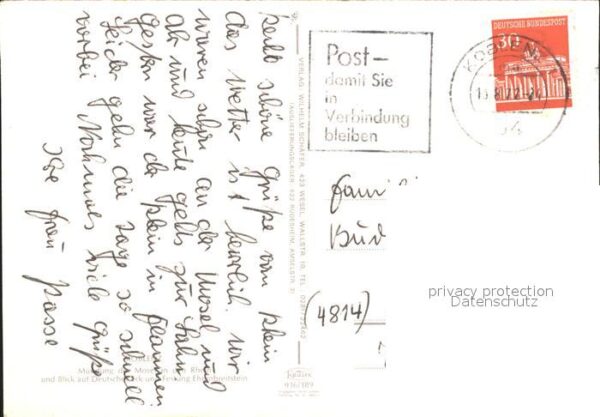 Recht schöne Grüße vom Rhein
das Wetter ist herrlich. Wir
waren schon an der Mosel und
Ahr und heute gehts zur Lahn
Gestern war der Rhein in Flammen
Leider gehn die Tage so schnell
vorbei Nochmals viele Grüße
Ihre Frau Passe
Mündung der Mosel in den Rhein
und Blick auf Deutsches Eck und Festung Ehrenbreitstein
VERLAG WILHELM SCHÄFER, 423 WESEL, WALLSTR. 10, TEL.
(AUSLIEFERUNGSLAGER: 622 RÜDESHEIM, AMSELSTR. 7)
916/189
Post–
damit Sie
in
Verbindung
bleiben
DEUTSCHE BUNDESPOST
30
KOBLENZ
54
Fami
Bud
(4814)
privacy protection
Datenschutz